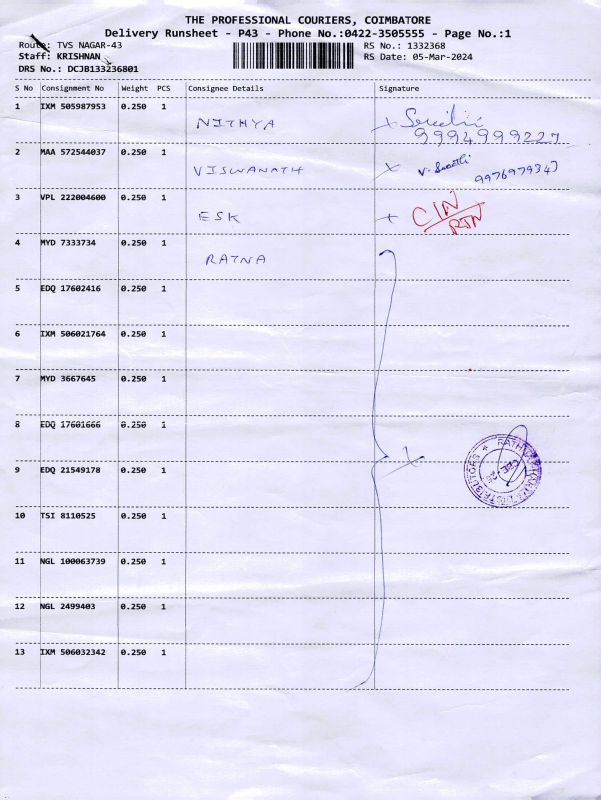 THE PROFESSIONAL COURIERS, COIMBATORE
Delivery Runsheet - P43 - Phone No.:0422-3505555 - Page No.:1
Route: TVS NAGAR-43
RS No.: 1332368
Staff: KRISHNAN
RS Date: 05-Mar-2024
DRS No.: DCJB133236801
S No Consignment No Weight PCS Consignee Details Signature
1 IXM 505987953 0.250 1
NITHYA
9994999227
2 MAA 572544037 0.250 1
VISWANATH V.
9976979347
3 VPL 222004600 0.250 1
ESK CIN/RTN
4 MYD 7333734 0.250 1
RATNA
5 EDQ 17602416 0.250 1
6 IXM 506021764 0.250 1
7 MYD 3667645 0.250 1
8 EDQ 17601666 0.250 1
9 EDQ 21549178 0.250 1
DISTRIBUTORS
CBE
10 TSI 8110525 0.250 1
11 NGL 100063739 0.250 1
12 NGL 2499403 0.250 1
13 IXM 506032342 0.250 1